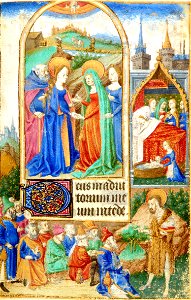 eus in adiut
torium me
um intede